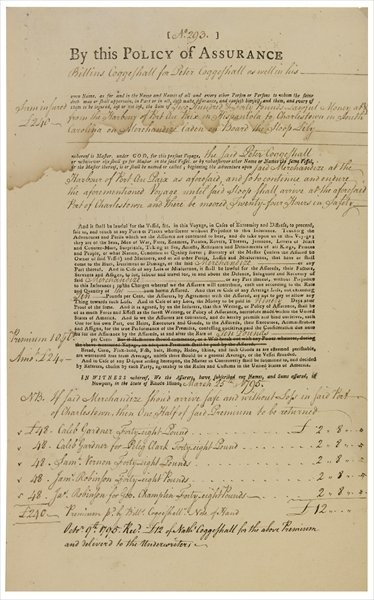 [No. 293.]
By this POLICY of ASSURANCE
Billings Coggeshall for Peter Coggeshall as well in his
own Name, as for and in the Name and Names of all and every other Person or Persons to whom the same
doth may or shall appertain, in Part or in all, doth make Assurance, and causeth himself, and them, and every of
them to be insured, lost or not lost, the Sum of Two Hundred & Forty Pounds Lawful Money at &
Sum insured
£240
from the Harbour of Port au Paix in Hispaniola to Charlestown in South
Carolina on Merchandize Laden on Board the Sloop Lily
whereof is Master, under GOD, for this present Voyage, the said Peter Coggeshall
or whosoever else shall go for Master in the said Vessel, or by whatsoever other Name or Names the same Vessel,
or the Master thereof, is or shall be named or called; beginning the Adventure on said Merchandize at the
Harbour of Port au Paix as aforesaid, and so to continue and endure
the aforementioned Voyage until said Sloop shall arrive at the aforesaid
Port of Charlestown and there be moored Twenty-four Hours in Safety
And it shall be lawful for the Vessel, &c. in this Voyage, in Case of Extremity and Distress, to proceed,
sail to, and touch at any Ports or Places whatsoever without Prejudice to this Insurance. Touching the
Adventures and Perils which we the Assurers are contented to bear, and do take upon us in this Voyage;
they are of the Seas, Men of War, Fires, Enemies, Pirates, Rovers, Thieves, Jettisons, Letters of Mart
and Counter-Mart, Surprisals, Taking at Sea, Arrests, Restraints and Detainments of all Kings, Princes
and People, of what Nation, Condition or Quality soever; Barratry of the Master
and of all other Perils, Losses and Misfortunes, that have or shall
come to the Hurt, Detriment or Damage, of the said Merchandize or any
Part thereof. And in Case of any Loss or Misfortune, it shall be lawful for the Assureds, their Factors,
Servants and Assigns, to sue, labour and travel for, in and about the Defence, Safeguard and Recovery of
said Merchandize or any Part thereof, without Prejudice to
this Insurance; to the Charges whereof we the Assurers will contribute, each one according to the Rate
and Quantity of the Sum herein Assured. And that in Case of any Average Loss, not exceeding
Ten Pounds per Cent. the Assurers by Agreement with the Assured, are not to pay or allow any
Thing towards such Loss. And in Case of any Loss, the Money to be paid in
Proof of the same. It is agreed by us the Insurers, that this Writing, or Policy of Assurance, shall be
of as much Force and Effect as the surest Writing, or Policy of Assurance, heretofore made within the United
States of America. And so we the Assurers are contented, and do hereby promise and bind ourselves, each
One for his own Part, our Heirs, Executors and Goods, to the Assureds, their Executors, Administrators
and Assigns, for the true Performance of the Premises, confessing ourselves paid the Consideration due unto
us for the Assurance by the Assureds, at and after the Rate of Ten Pounds
per Cent.
Premium 10 ℔ Ct.
Amot. £24
Wheat, Hides, Skins, and such Goods as are esteemed perishable,
are warranted free from Average, unless there should be a general Average, or the Vessel Stranded.
And in Case of any Dispute arising hereupon, the Matter in Controversy shall be submitted to, and decided
by Referees, chosen by each Party, agreeably to the Rules and Customs in the United States of America.
IN WITNESS whereof, We the Assurers, have subscribed our Names, and Sums assured, in
Newport, in the State of Rhode Island, March 25th, 1795.
NB. If said Merchandize should arrive safe and without Loss in said Port
of Charlestown, then One Half of said Premium to be returned
£48 Caleb Gardner Forty-eight Pound £ 2 " 8 " "
48 Caleb Gardner for Peleg Clark Forty-eight Pound 2 " 8 " "
48 Saml. Vernon Forty-eight Pounds 2 " 8 " "
48 Jas. Robinson Forty-eight Pounds 2 " 8 " "
48 Jas. Robinson for Champlin Forty-eight Pounds 2 " 8 " "
£240 Premium pd. by Bills. Coggeshall's Note of Hand £12 " "
Octr. 9th. 1795 Recd. £12 of Nathl. Coggeshall for the above Premium
and deliver'd to the Underwriters;